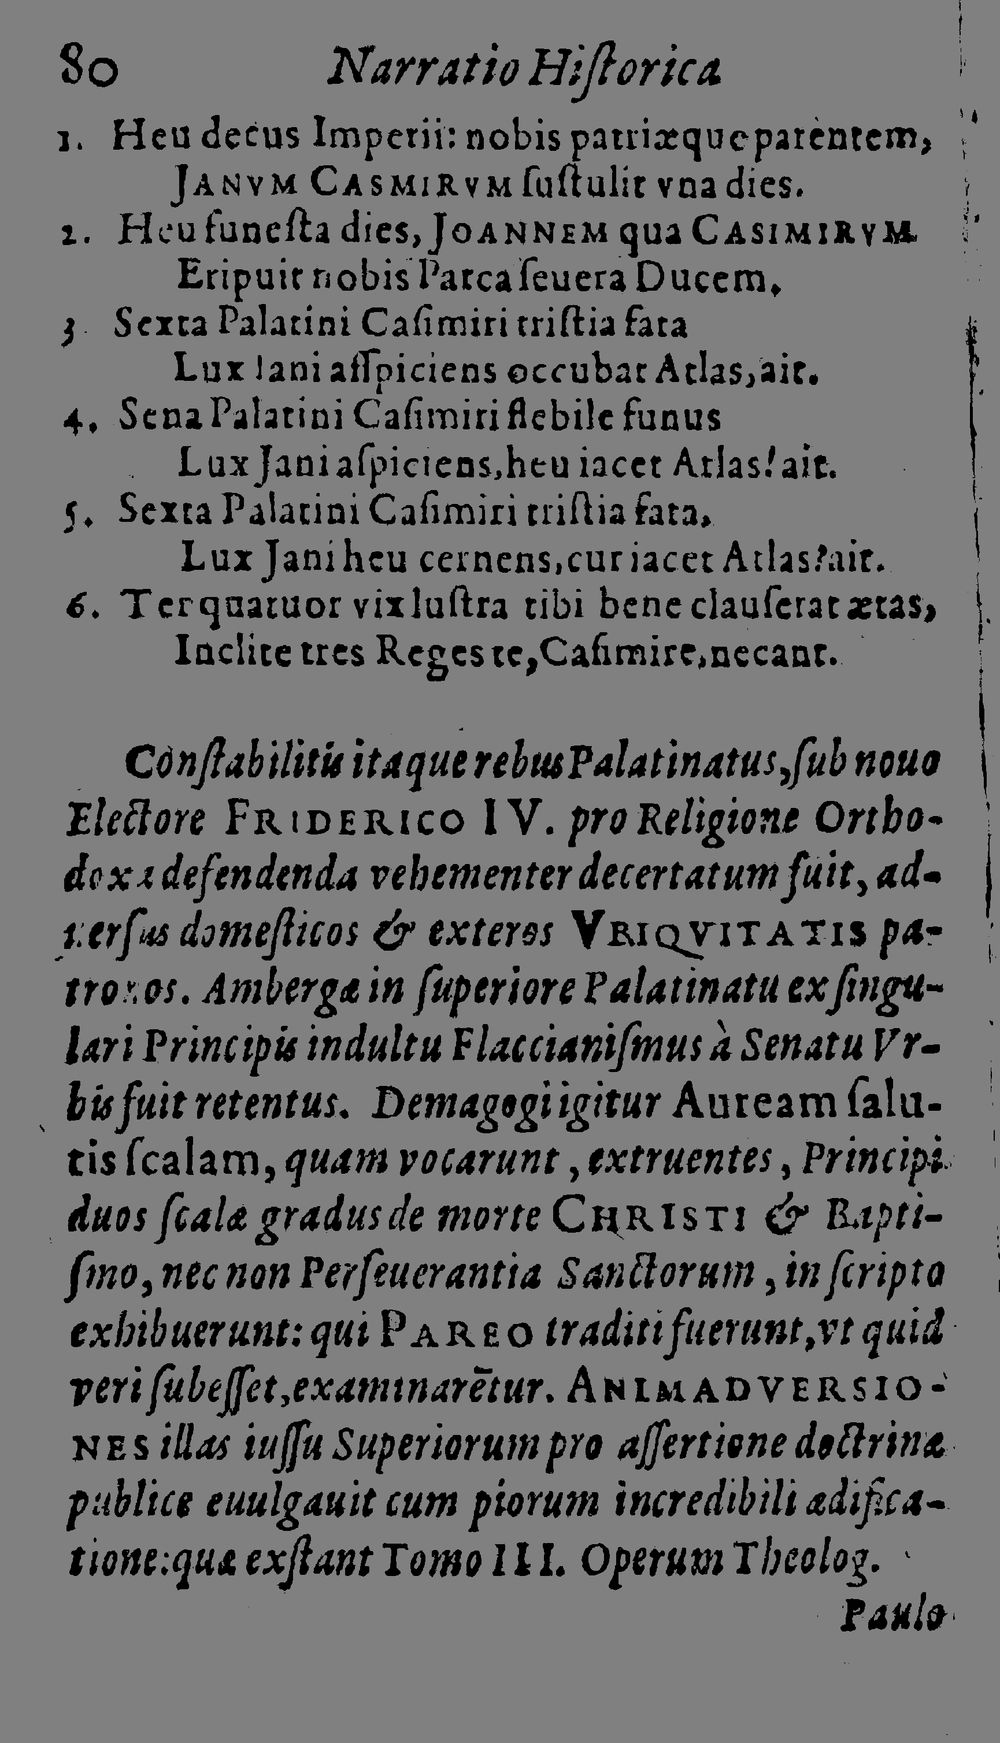 80 Narratio Hiſtorica
1. Heu decus Imperii: nobis patriæque parentem,
JANVM CASMIRVM ſuſtulit vna dies.
2. Heu funeſta dies, JOANNEM qua CASIMIRVM
Eripuit nobis Parca ſeuera Ducem.
3. Sexta Palatini Caſimiri triſtia fata
Lux Iani aſſpiciens occubat Atlas, ait.
4. Sena Palatini Caſimiri flebile funus
Lux Jani aſpiciens, heu iacet Atlas! ait.
5. Sexta Palatini Caſimiri triſtia fata,
Lux Jani heu cernens, cur iacet Atlas? ait.
6. Ter quatuor vix luſtra tibi bene clauſerat ætas,
Inclite tres Reges te, Caſimire, necant.
Conſtabilitis itaque rebus Palatinatus, ſub nouo
Electore FRIDERICO IV. pro Religione Ortho-
doxa defendenda vehementer decertatum fuit, ad-
uerſus domeſticos & exteros VBIQVITATIS pa-
tronos. Ambergæ in ſuperiore Palatinatu ex ſingu-
lari Principis indultu Flaccianiſmus à Senatu Vr-
bis fuit retentus. Demagogi igitur Auream ſalu-
tis ſcalam, quam vocarunt, extruentes, Principi
duos ſcalæ gradus de morte CHRISTI & Bapti-
ſmo, nec non Perſeuerantia Sanctorum, in ſcripto
exhibuerunt: qui PAREO traditi fuerunt, vt quid
veri ſubeſſet, examinarētur. ANIMADVERSIO-
NES illas iuſſu Superiorum pro aſſertione doctrinæ
publice euulgauit cum piorum incredibili ædifica-
tione: quæ exſtant Tomo III. Operum Theolog.
Paulo